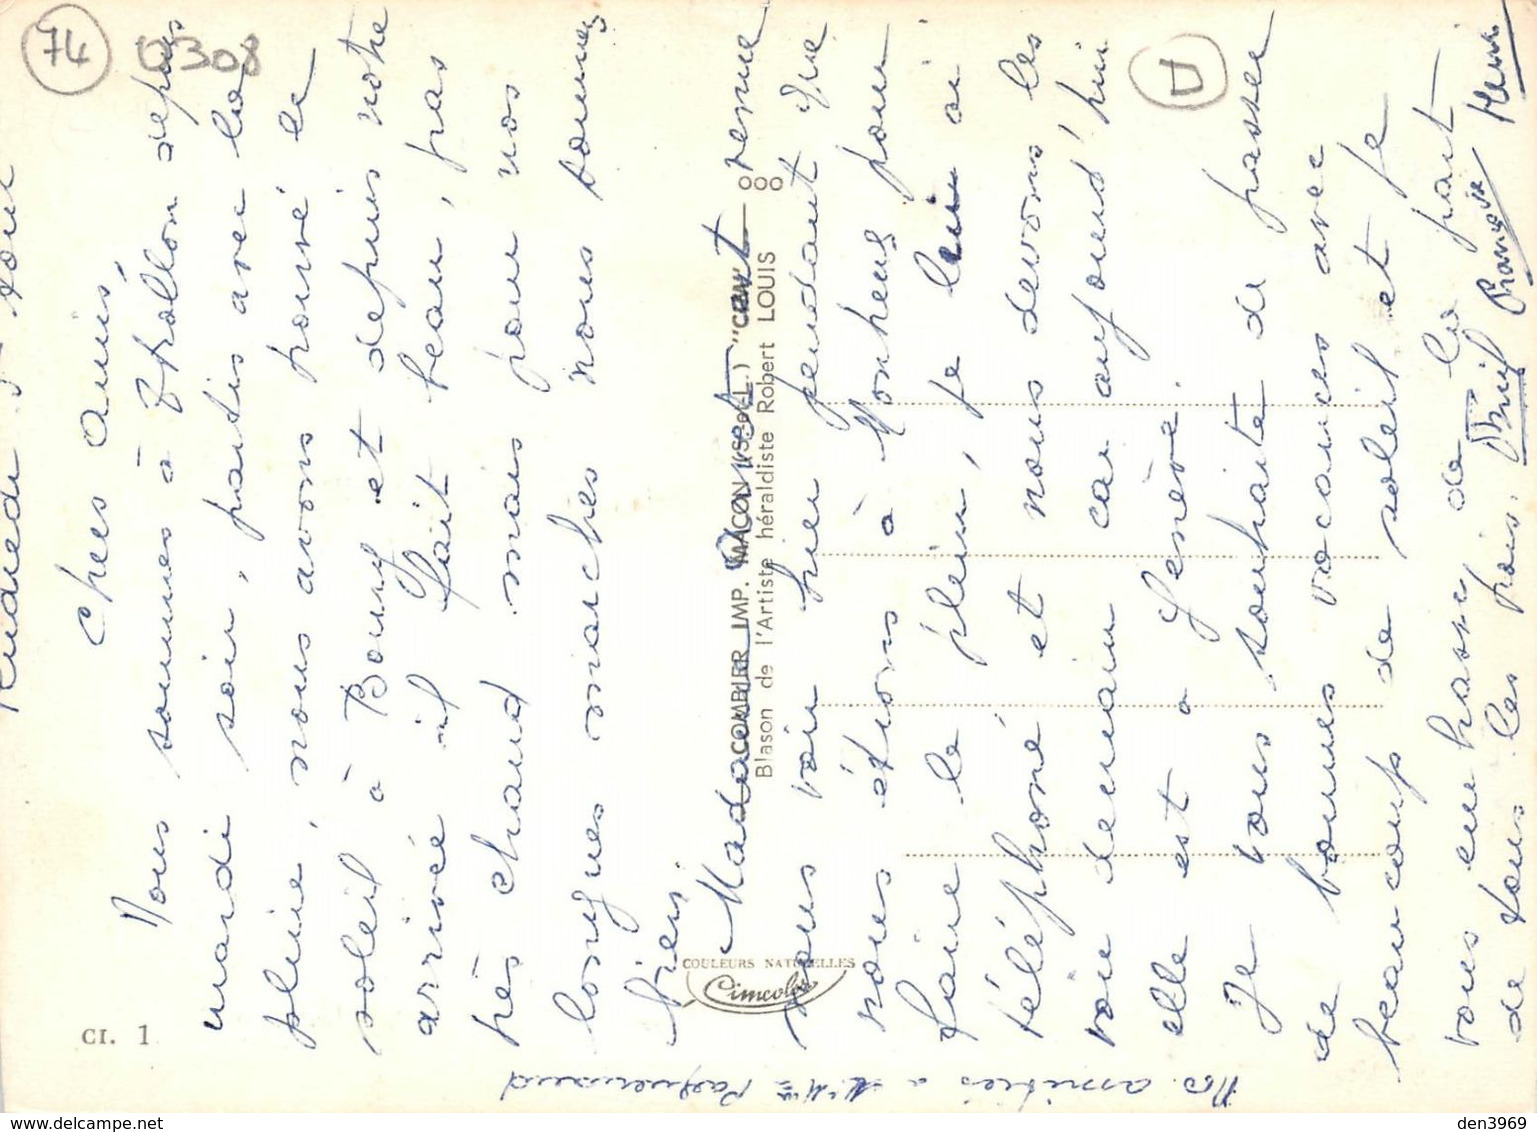 Chers amis,
Nous sommes à depuis
mardi soir, partis avec la
pluie, nous avons trouvé le
soleil à Bourg et depuis notre
arrivée il fait beau, pas
très chaud mais pour nos
longues marches nous sommes
bien.
Madame est venue
nous voir hier pendant que
nous étions à pour
faire le plein, je lui ai
téléphoné et nous devons les
voir demain car aujourd'hui
elle est à Genève.
Je vous souhaite de passer
de bonnes vacances avec
beaucoup de soleil et je
vous embrasse de la part
de tous les trois.
Nos amitiés à
COMBIER IMP. MACON (S.-et-L.) "CIM"
Blason de l'Artiste héraldiste Robert LOUIS
COULEURS NATURELLES
Cimcolor
CI. 1
74
0308
den3969